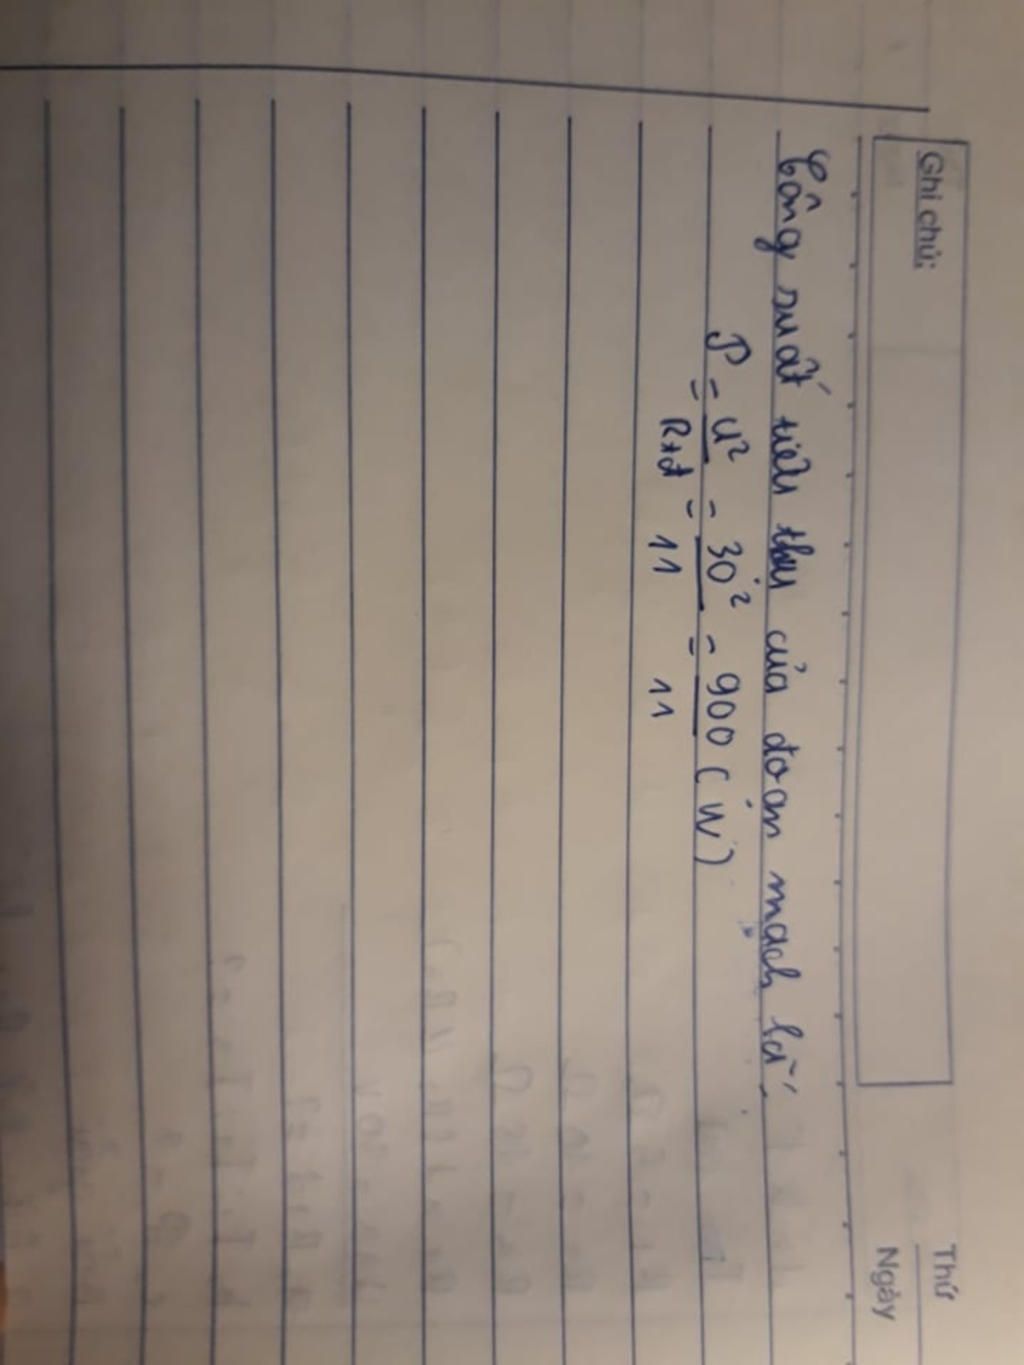 Ghi chú:
Thứ
Ngày
Công suất tiêu thụ của đoạn mạch là:
P = U² = 30² = 900 (W)
Rtđ 11 11